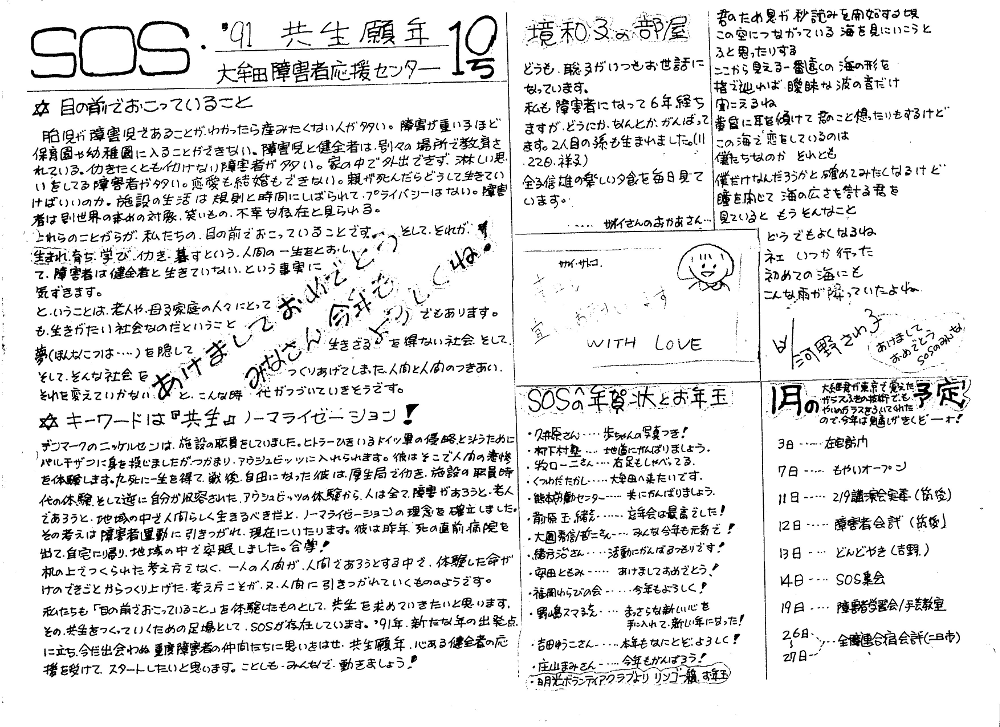 SOS・'91 共生願年 10号
大牟田障害者応援センター
☆ 目の前でおこっていること
胎児が障害児であることが、わかったら産みたくない人が多い。障害が重い子ほど
保育園や幼稚園に入ることができない。障害児と健全者は、別々の場所で教育さ
れている。イ力きたくともイ力けない障害者が多い。家の中で外出できず、淋しい思
いをしてる障害者が多い。恋愛も結婚もできない。親が死んだらどうして生きてい
けばいいのか。施設の生活は規則と時間にしばられて、プライバシーはない。障害
者は別世界の哀れみの対象、笑いもの、不幸な存在と見られる。
これらのことがらが、私たちの、目の前でおこっていることです。そして、それが、
生まれ、育ち、学び、イ力き、暮すという、人間の一生をとおし
て、障害者は健全者と生きていない、という事実に
気ずきます。
と、いうことは、老人や、母子家庭の人々にとって
も、生きがたい社会なのだということ でもあります。
夢(ほんなこつは…)を隠して 生きざるを得ない社会、そして、
そして、そんな社会を つくりあげてしまった人間と人間のつきあい、
それを変えていかない と、こんな時代がつづいていきそうです。
あけましておめでとう
みなさん今年もよろしくね!
☆ キーワードは『共生』ノーマライゼーション!
デンマークのニッケルセンは、施設の職員をしていました。ヒトラーひきいるドイツ軍の侵略と斗うために
パルチザンに身を投じましたがつかまり、アウシュビッツに入れられます。彼はそこで人間の悲惨
を体験します。九死に一生を得て、戦後、自由になった彼は、厚生局でイ力き、施設の職員時
代の体験、そして逆に自分が収容された、アウシュビッツの体験から、人は全て、障害があろうと、老人
であろうと、地域の中で人間らしく生きるべきだと、ノーマライゼーションの理念を確立しました。
その考えは障害者運動に引きつがれ、現在にいたります。彼は昨年、死の直前、病院を
出て、自宅に帰り、地域の中で永眠しました。合掌!
机の上でつくられた考え方でなく、一人の人間が、人間であろうとする中で、体験した命が
けのできごとからつくり上げた、考え方こそが、又、人間に引きつがれていくもののようです。
私たちも「目の前でおこっていること」を体験したものとして、共生を求めていきたいと思います。
その、共生をつくっていくための足場として、SOSが存在しています。'91年、新たな年の出発点
に立ち、今だ出会わぬ重度障害者の仲間たちに思いをはせ、共生願年、心ある健全者の応
援を受けて、スタートしたいと思います。ことしも、みんなで、動きましょう!
境和子の部屋
どうも、聡子がいつもお世話に
なっています。
私も障害者になって6年経ち
ますが、どうにか、なんとか、がんばって
ます。2人目の孫も生まれました(11
.22日、祥多)
金子信雄の楽しい夕食を毎日見て
います。
サカイさんのおかあさん…
サカイ・サトコ
WITH LOVE
君のため息が秒読みを開始する頃
この空につながっている海を見にいこうと
ふと思ったりする
ここから見える一番遠くの海の形を
指で辿れば曖昧な波の音だけ
聞こえるね
潮音に耳を傾けて君のこと想ったりもするけど
この海で恋をしているのは
僕たちなのか それとも
僕だけなんだろうかと確めてみたくなるけど
瞳を閉じて海の広さを計る君を
見ていると もうそんなこと
どうでもよくなるね
ネェ いつか行った
初めての海にも
こんな雨が降っていたよね
by 河野さい子
あけまして
おめでとう
SOSのみんな
SOSへの年賀状とお年玉
・久木原さん…歩ちゃんの写真つき!
・松下村塾…地道にがんばりましょう。
・牧ローニさん…右足もしゃべってる。
・くつわだたかし…大牟田へ来たいです。
・熊本労働センター…共にがんばりましょう。
・前原玉緒さん…忘年会は最高でした!
・大園秀信・哲二さん…みんな今年も元気で!
・緒方治さん…活動にがんばるっきりです!
・安田ともみ…あけましておめでとう!
・福岡わらびの会…今年もよろしく!
・野島スマ子さん…まっさらな新しい心を
手に入れて、新しい年になった!
・吉田ゆうこさん…本年もなにとどよろしく!
・庄山まみさん…今年もがんばろう!
・明光ボランティアクラブより リンゴ一箱、お年玉
1月の予定!
3日…在宅訪庁
7日…もやいオープン
11日…2/9講演会実委(筑後)
12日…障害者会計(筑後)
13日…どんどやき(吉野)
14日…SOS集会
19日…障害者学習会/手芸教室
26日
〜
27日…全障連合宿会計(二日市)